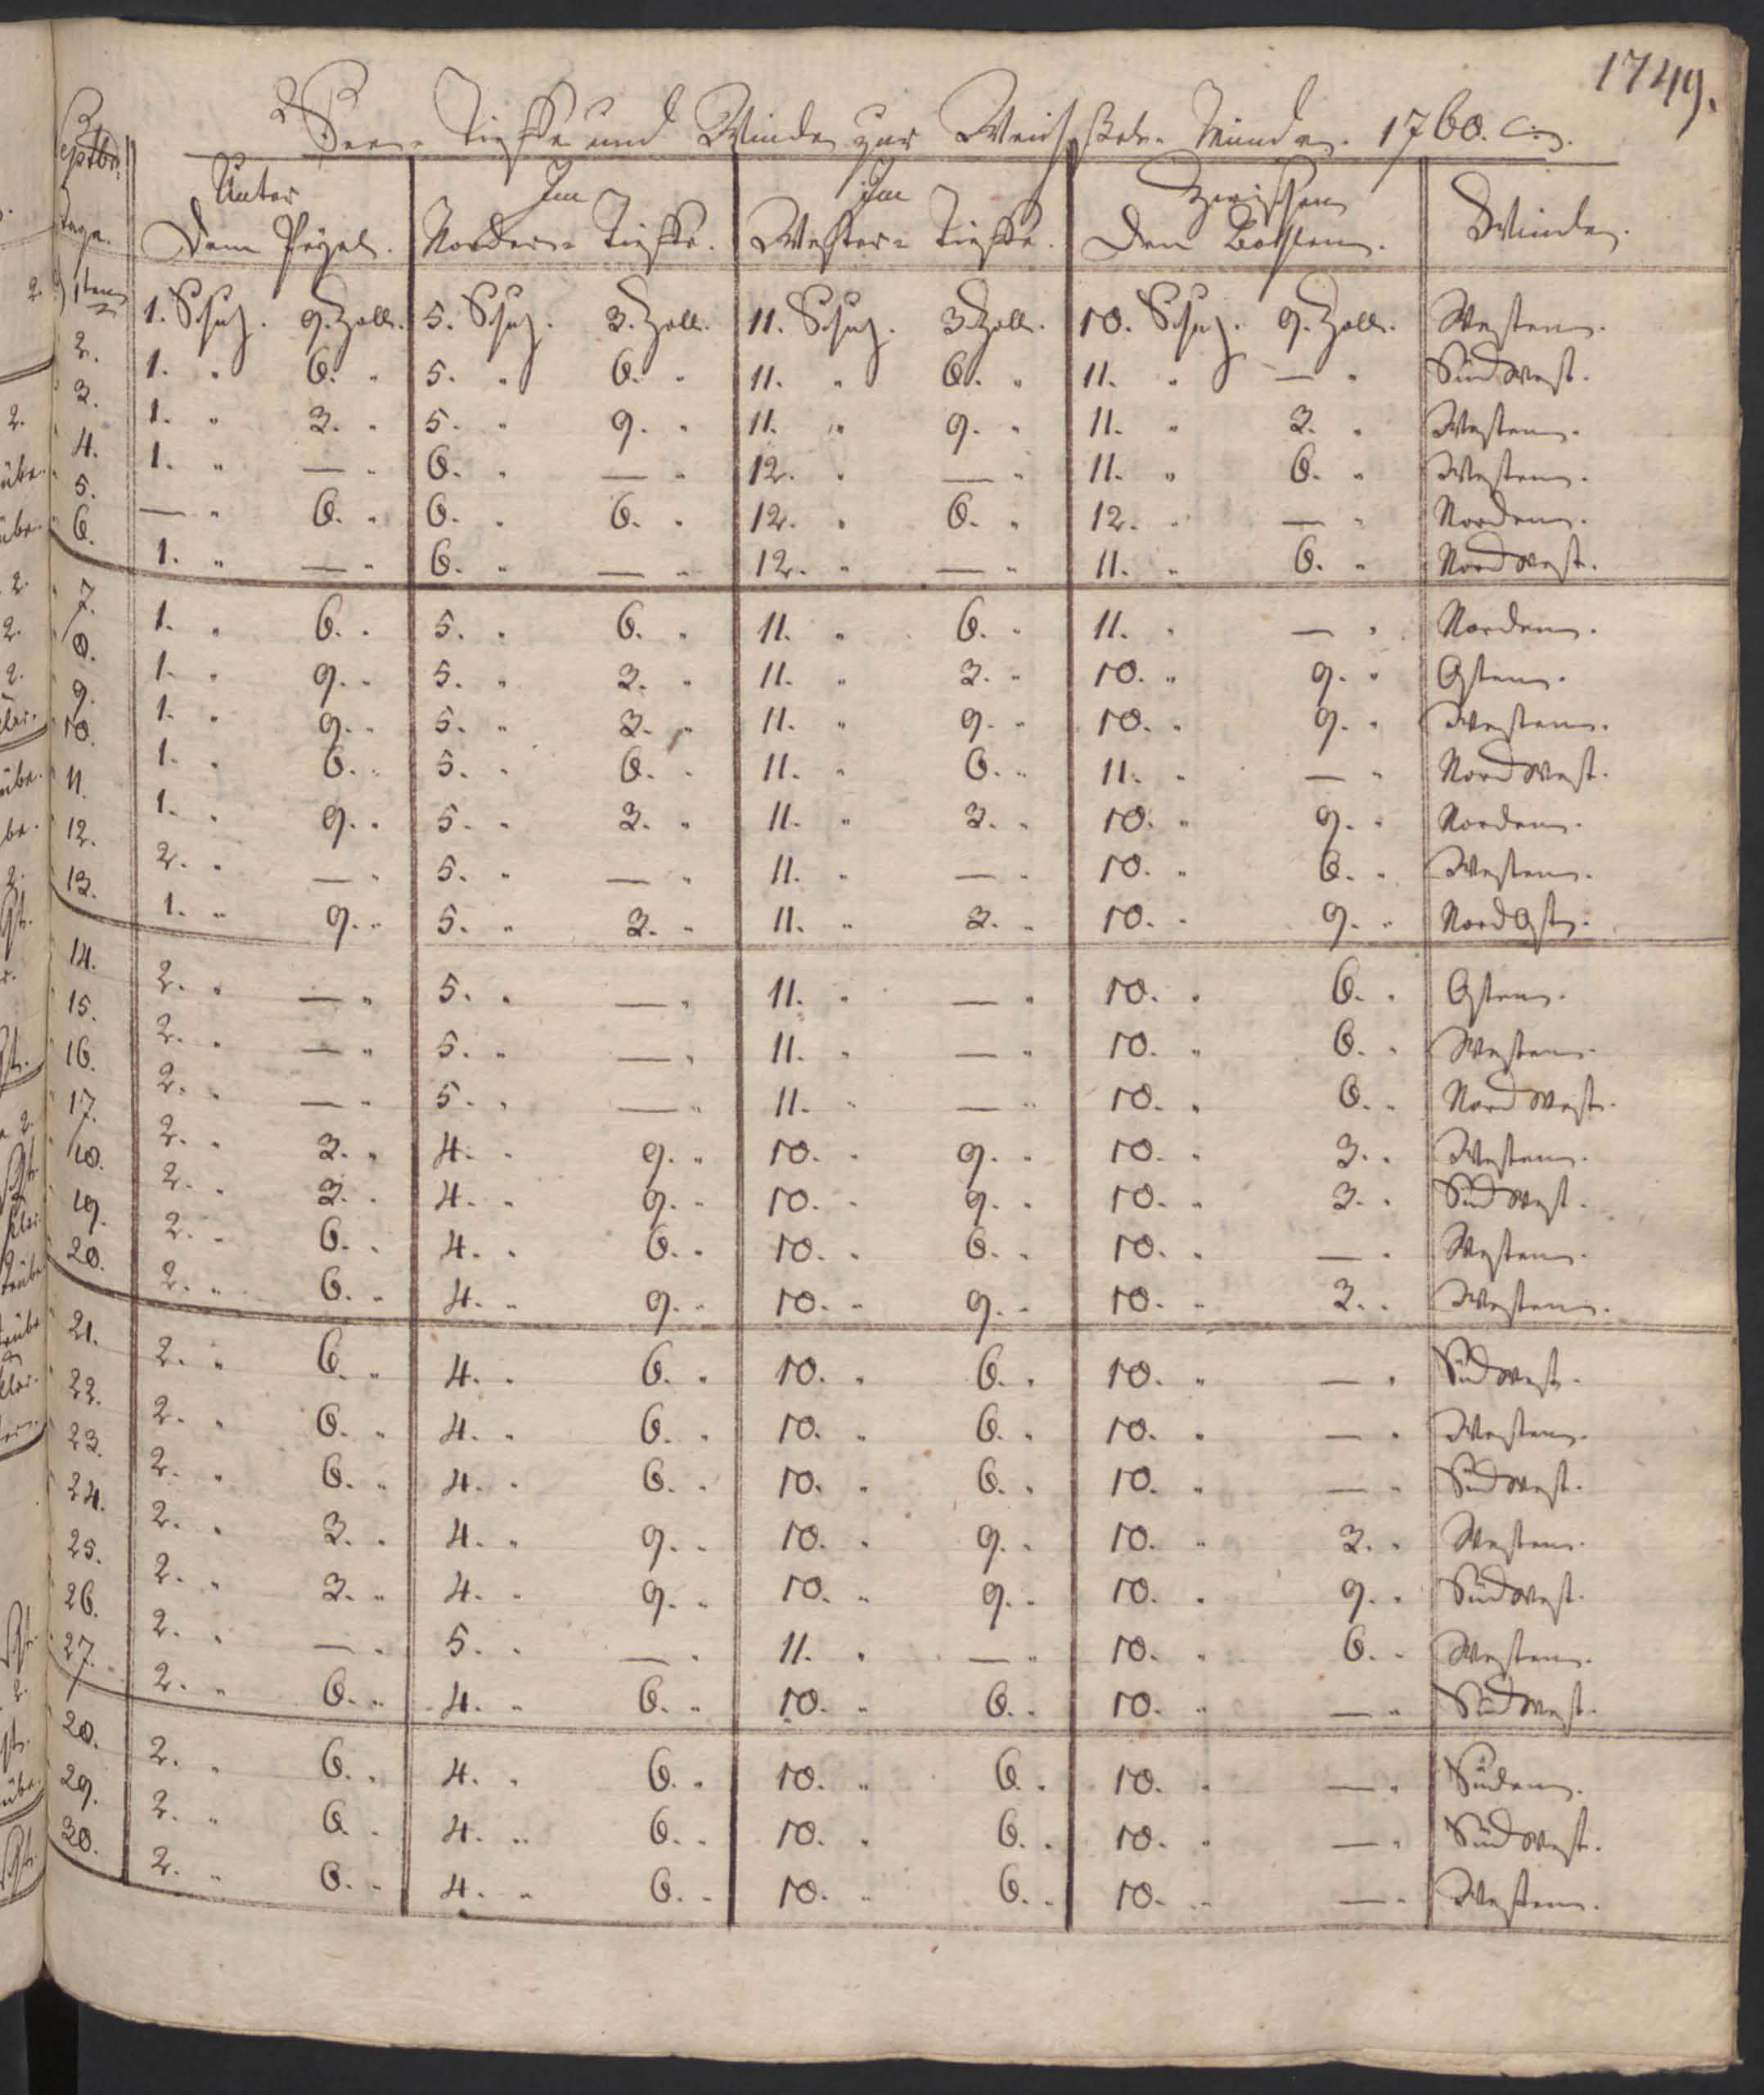 1749.
See- Tieffe und Winde zur Weichßel- Münde. 1760.
Septbr. Unter Im Im Zwischen
Tage. Dem Pegel. Norder- Tieffe. Wester- Tieffe. Den Winde.
1ten 1. Schuh. 9. Zoll. 5. Schuh. 3. Zoll. 11. Schuh. 3. Zoll. 10. Schuh. 9. Zoll. Westen.
2. 1. " 6. " 5. " 6. " 11. " 6. " 11. " — " Südwest.
3. 1. " 3. " 5. " 9. " 11. " 9. " 11. " 3. " Westen.
4. 1. " — " 6. " — " 12. " — " 11. " 6. " Westen.
5. — " 6. " 6. " 6. " 12. " 6. " 12. " — " Norden.
6. 1. " — " 6. " — " 12. " — " 11. " 6. " Nordwest.
7. 1. " 6. " 5. " 6. " 11. " 6. " 11. " — " Norden.
8. 1. " 9. " 5. " 3. " 11. " 3. " 10. " 9. " Osten.
9. 1. " 9. " 5. " 3. " 11. " 9. " 10. " 9. " Westen.
10. 1. " 6. " 5. " 6. " 11. " 6. " 11. " — " Nordwest.
11. 1. " 9. " 5. " 3. " 11. " 3. " 10. " 9. " Norden.
12. 2. " — " 5. " — " 11. " — " 10. " 6. " Westen.
13. 1. " 9. " 5. " 3. " 11. " 3. " 10. " 9. " NordOst.
14. 2. " — " 5. " — " 11. " — " 10. " 6. " Osten.
15. 2. " — " 5. " — " 11. " — " 10. " 6. " Westen.
16. 2. " — " 5. " — " 11. " — " 10. " 6. " Nordwest.
17. 2. " 3. " 4. " 9. " 10. " 9. " 10. " 3. " Westen.
18. 2. " 3. " 4. " 9. " 10. " 9. " 10. " 3. " Südwest.
19. 2. " 6. " 4. " 6. " 10. " 6. " 10. " — " Westen.
20. 2. " 6. " 4. " 9. " 10. " 9. " 10. " 3. " Westen.
21. 2. " 6. " 4. " 6. " 10. " 6. " 10. " — " Südwest.
22. 2. " 6. " 4. " 6. " 10. " 6. " 10. " — " Westen.
23. 2. " 6. " 4. " 6. " 10. " 6. " 10. " — " Südwest.
24. 2. " 3. " 4. " 9. " 10. " 9. " 10. " 3. " Westen.
25. 2. " 3. " 4. " 9. " 10. " 9. " 10. " 9. " Südwest.
26. 2. " — " 5. " — " 11. " — " 10. " 6. " Westen.
27. 2. " 6. " 4. " 6. " 10. " 6. " 10. " — " Südwest.
28. 2. " 6. " 4. " 6. " 10. " 6. " 10. " — " Süden.
29. 2. " 6. " 4. " 6. " 10. " 6. " 10. " — " Südwest.
30. 2. " 6. " 4. " 6. " 10. " 6. " 10. " — " Westen.